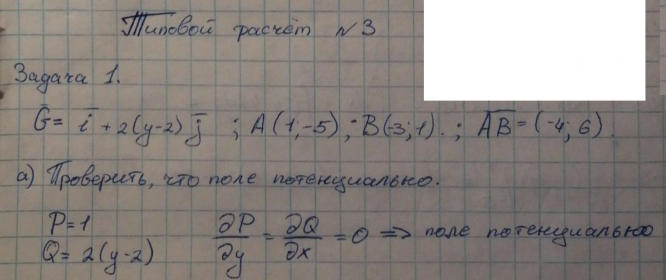 Типовой расчёт №3
Задача 1.
G̅ = i̅ + 2(y-2) j̅ ; A(1;-5); B(-3;1). ; A̅B̅ = (-4; 6).
а) Проверить, что поле потенциально.
P=1 ∂P/∂y = ∂Q/∂x = 0 => поле потенциально
Q= 2(y-2)